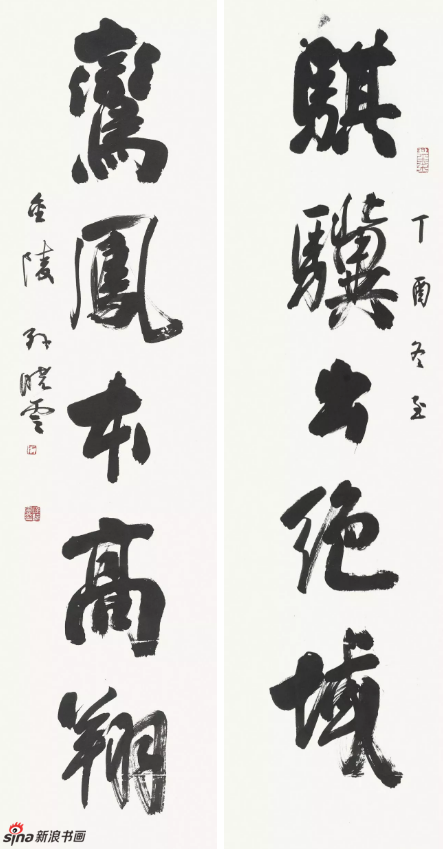 騏驥出絶域
丁酉冬至
鸞鳳本高翔
金陵孙晓雲
sina新浪书画